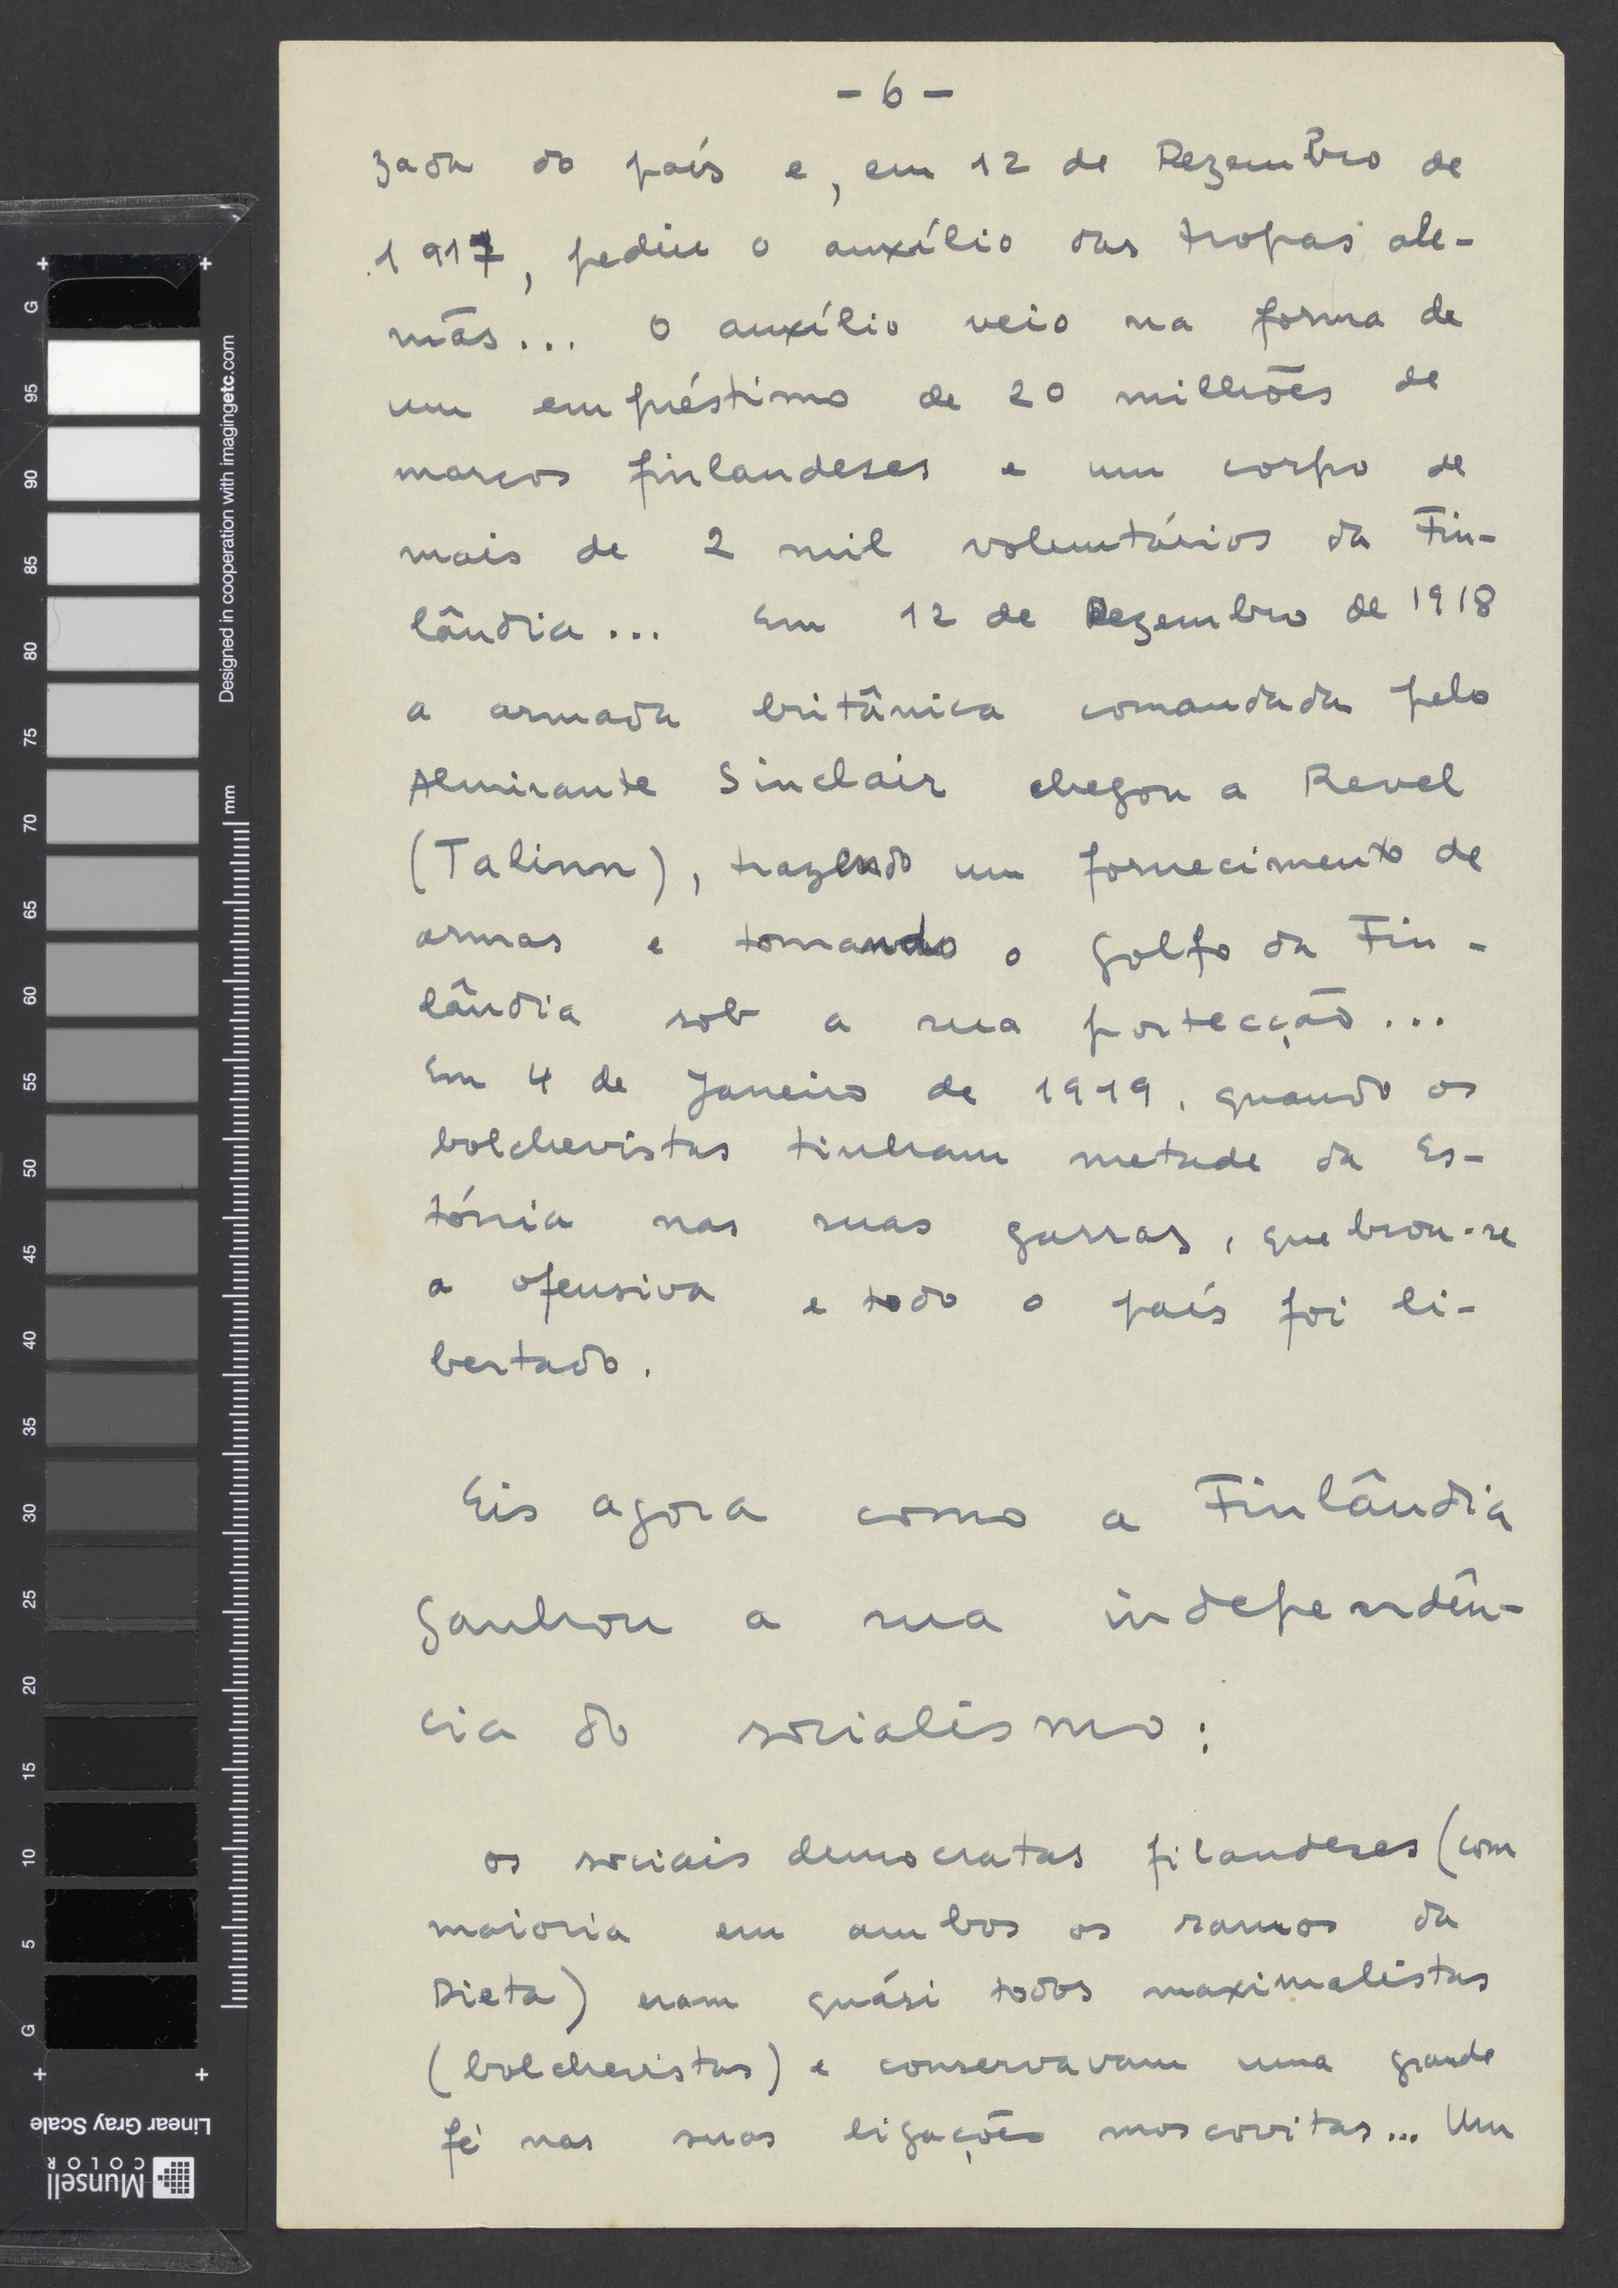 - 6 -
zada do país e, em 12 de Dezembro de
1917, pediu o auxílio das tropas ale-
mãs... O auxílio veio na forma de
um empréstimo de 20 milhões de
marcos finlandeses e um corpo de
mais de 2 mil voluntários da Fin-
lândia... Em 12 de Dezembro de 1918
a armada britânica comandada pelo
Almirante Sinclair chegou a Revel
(Talinn), trazendo um fornecimento de
armas e tomando o Golfo da Fin-
lândia sob a sua portecção...
Em 4 de Janeiro de 1919, quando os
bolchevistas tinham metade da Es-
tónia nas suas garras, quebrou-se
a ofensiva e todo o país foi li-
bertado.
Eis agora como a Finlândia
ganhou a sua independên-
cia do socialismo:
Os sociais democratas filandeses (com
maioria em ambos os ramos da
Dieta) eram quási todos maximalistas
(bolchevistas) e conservavam uma grande
fé nas suas ligações moscovitas... Um
G
95
90
85
80
75
70
65
60
55
50
45
40
35
30
25
20
15
10
5
G
Designed in cooperation with imagingetc.com
mm
Linear Gray Scale
Munsell
COLOR